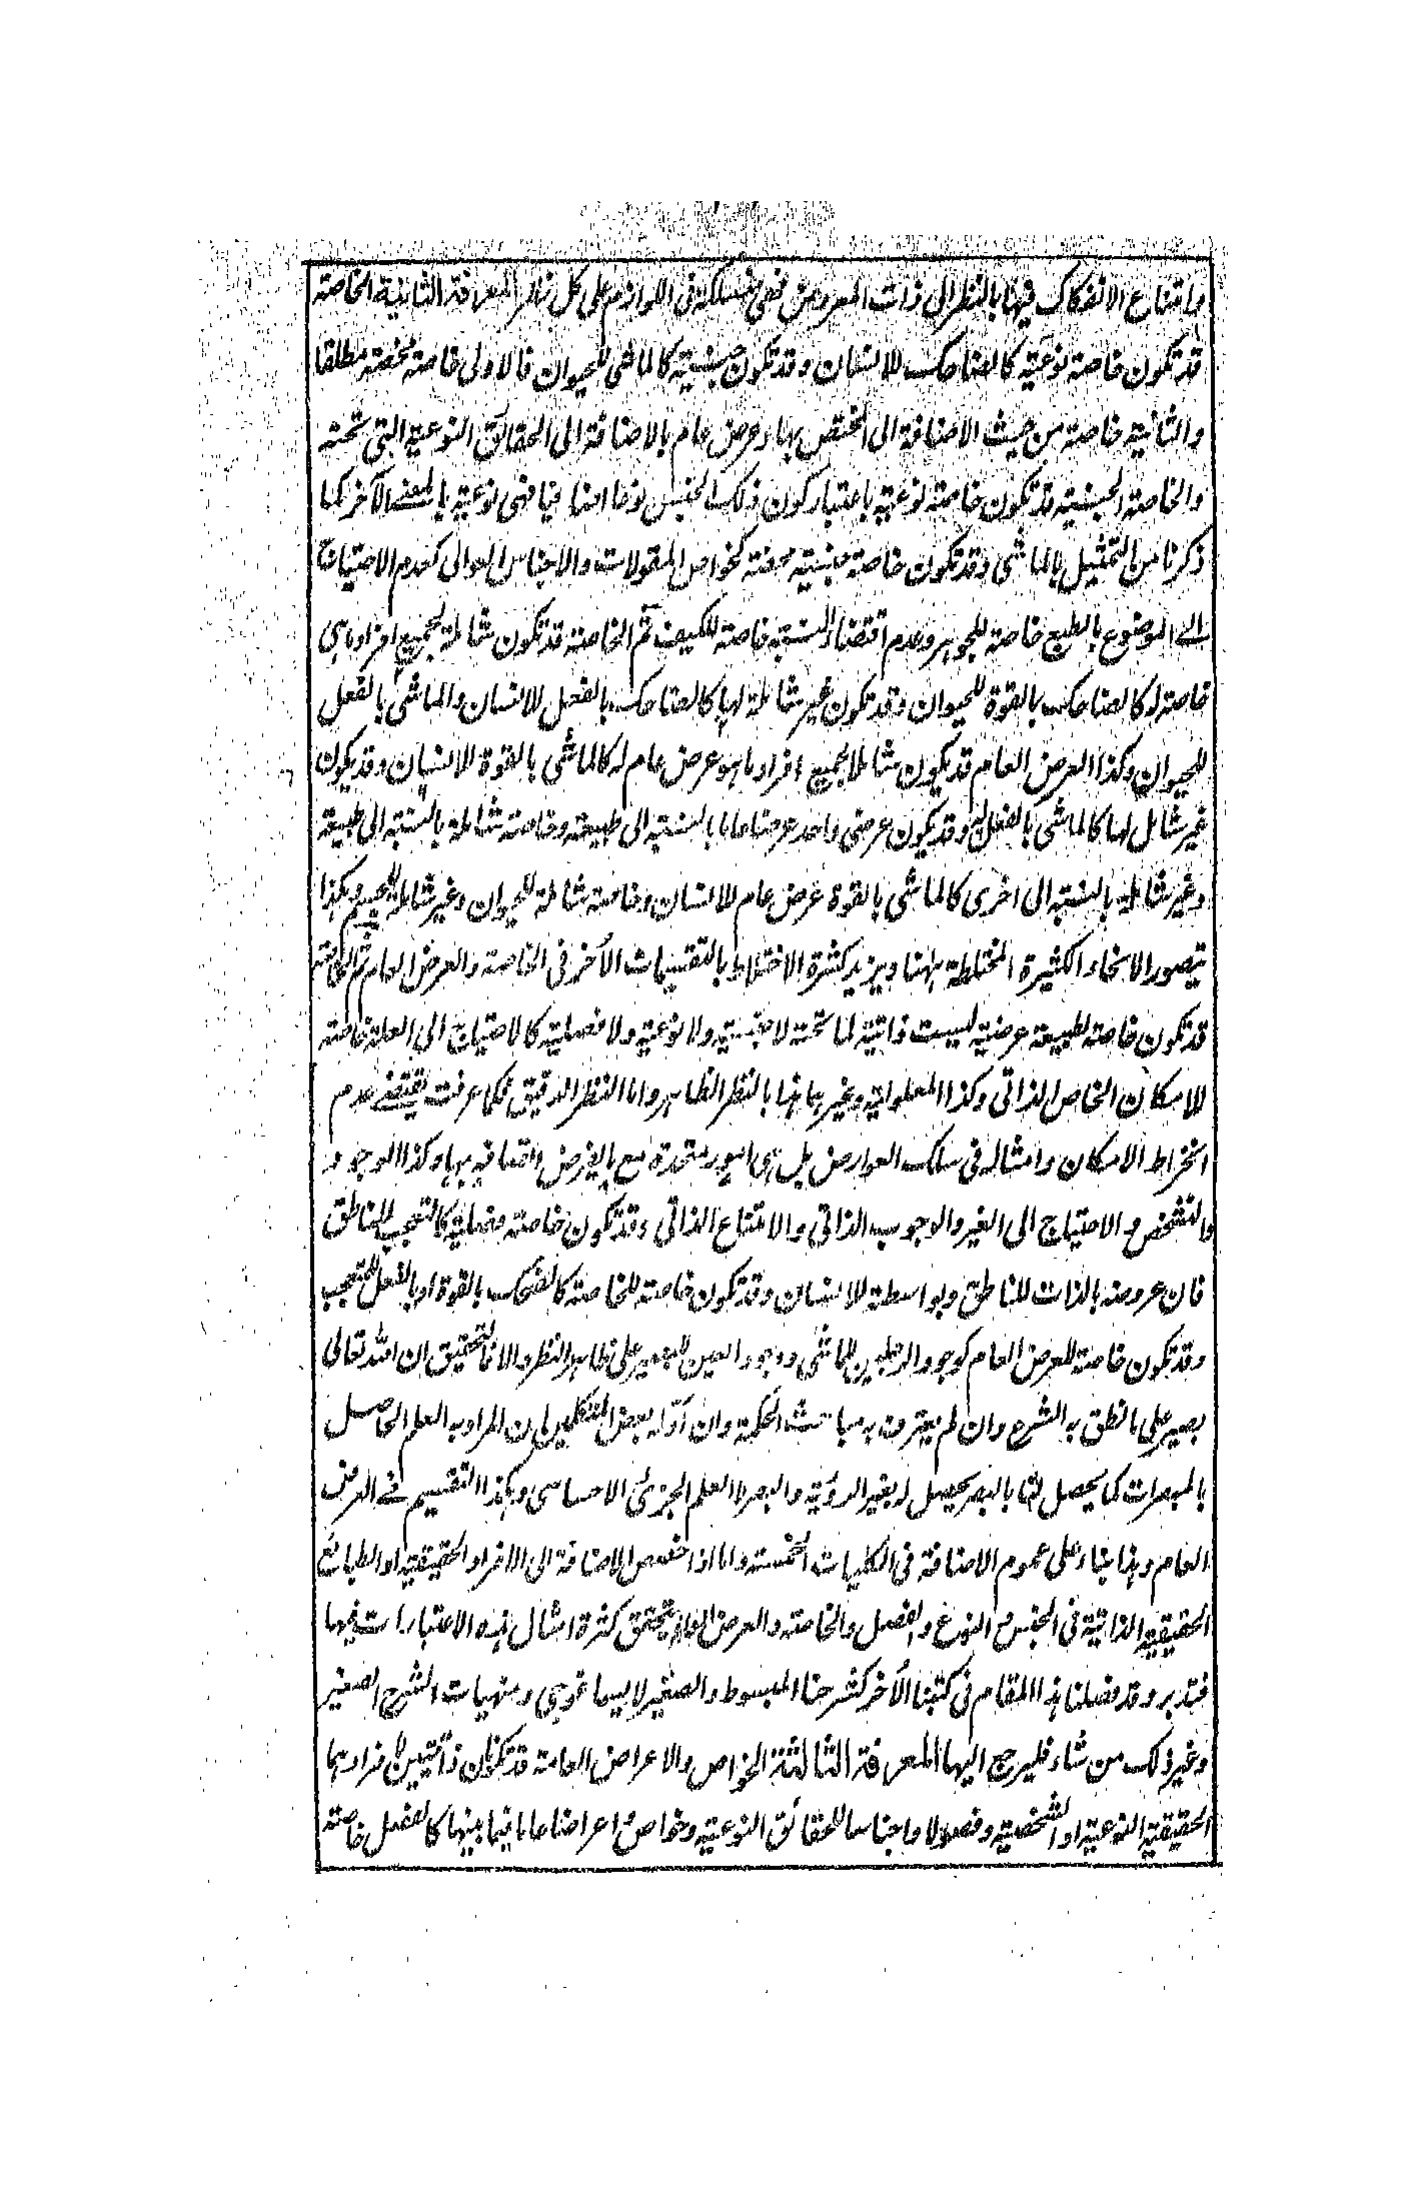 وامتناع الانفكاك فيها بالنظر الى ذات المعروض فهى منسلكة فى اللوازم على كل نظر المعرافة الثانية الخاصة
قد تكون خاصة نوعية كالضاحك للانسان وقد تكون جنسية كالماشى للحيوان فالاولى خاصة محضة مطلقا
والثانية خاصة من حيث الاضافة الى المختص بها وعرض عام بالاضافة الى الحقائق النوعية التى تحته
والخاصة الجنسية قد تكون خاصة نوعية باعتبار كون ذلك الجنس نوعا اضافيا فهى نوعية بالمعنے الآخر كما
ذكرنا من التمثيل بالماشى وقد تكون خاصة جنسية محضة كخواص المقولات والاجناس العوالى كعدم الاحتياج
الے الموضوع بالطبع خاصة للجوهر وعدم اقتضاء النسبة خاصة للكيف ثم الخاصة قد تكون شاملة لجميع افراد ما هى
خاصة له كالضاحك بالقوة للحيوان وقد تكون غير شاملة لها كالضاحك بالفعل للانسان والماشى بالفعل
للحيوان وكذا العرض العام قد يكون شاملا لجميع افراد ما هو عرض عام له كالماشى بالقوة للانسان وقد يكون
غير شامل لها كالماشى بالفعل له وقد يكون عرضى واحد عرضا عاما بالنسبة الى طبيعة وخاصة شاملة بالنسبة الى طبيعة
وغير شاملة بالنسبة الى اخرى كالماشى بالقوة عرض عام للانسان وخاصة شاملة للحيوان وغير شاملة للجسم وهكذا
يتصور الانحاء الكثيرة المختلطة ههنا ويزيد كثرة الاختلاط بالتقسيمات الأخر فى الخاصة والعرض العام ثم الخاصة
قد تكون خاصة لطبيعة عرضية ليست ذاتية لما تحته لا جنسية ولا نوعية ولا فصلية كالاحتياج الى العلة خاصة
للامكان الخاص الذاتى وكذا المعلولية وغيرها هذا بالنظر الظاهر واما النظر الدقيق فكما عرفت يقتضے عدم
انخراط الامكان وامثاله فى سلك العوارض بل هى امور متحدة مع ما يفرض اتصافه بها وكذا الوجود
والتشخص والاحتياج الى الغير والوجوب الذاتى والامتناع الذاتى وقد تكون خاصة فصلية كالتعجب للناطق
فان عروضه بالذات للناطق وبواسطة للانسان وقد تكون خاصة للخاصة كالضحك بالقوة او بالفعل للمتعجب
وقد تكون خاصة للعرض العام كوجود الرجلين للماشى ووجود العين للبصير على ظاهر النظر والا فالتحقيق ان الله تعالى
بصير على ما نطق به الشرع وان لم يعترف به مباحث الحكمة وان أوله بعض المتكلمين بان المراد به العلم الحاصل
بالمبصرات كما يحصل لنا بالبصر يحصل له بغير الرؤية والبصر لا العلم الجزئى الاحساسى وهكذا التقسيم فے العرض
العام وهذا بناء على عموم الاضافة فى الكليات الخمسة واما اذا خصص الاضافة الى الافراد الحقيقية او الطبائع
الحقيقية الذاتية فى الجنس والنوع والفصل والخاصة والعرض العام يتحقق كثرة امثال هذه الاعتبارات فيها
فتدبر وقد فصلنا هذا المقام فى كتبنا الأخر كشرحنا المبسوط والصغير لايساغوجى ومنهيات الشرح الصغير
وغير ذلك من شاء فليرجع اليها المعرافة الثالثة الخواص والاعراض العامة قد تكونان ذاتيتين لافرادهما
الحقيقية النوعية او الشخصية وفصولا واجناسا للحقائق النوعية وخواص واعراضا عاما فيما بينها كالفصل خاصة